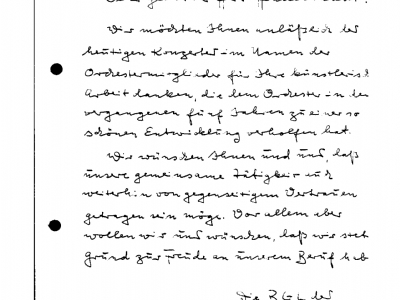 Wir möchten Ihnen anläßlich des
heutigen Konzertes im Namen der
Orchestermitglieder für Ihre künstleris
Arbeit danken, die dem Orchester in den
vergangenen fünf Jahren zu einer so
schönen Entwicklung verholfen hat.
Wir wünschen Ihnen und uns, daß
unsere gemeinsame Tätigkeit auch
weiterhin von gegenseitigem Vertrauen
getragen sein möge. Vor allem aber
wollen wir uns wünschen, daß wir stets
Grund zur Freude an unserem Beruf hab